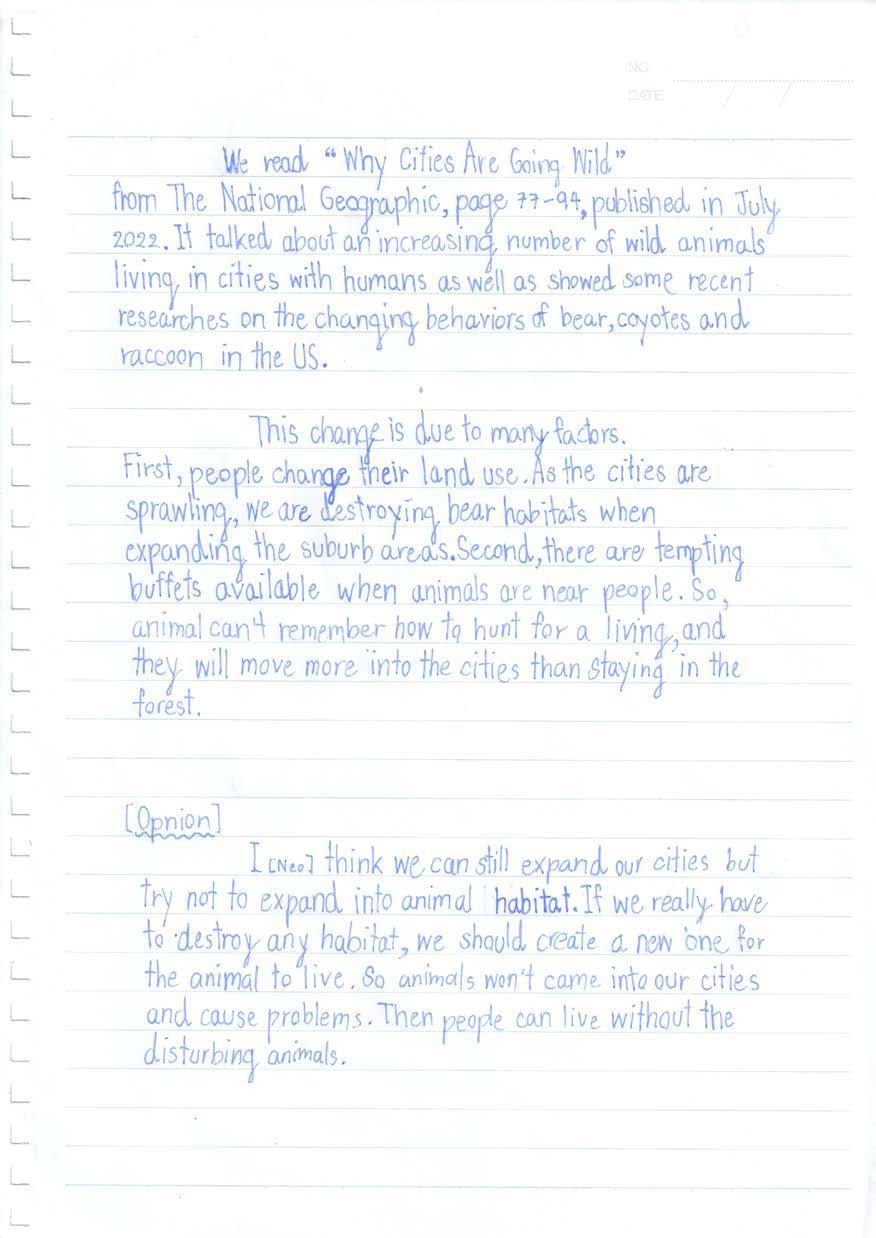 NO.
DATE
We read "Why Cities Are Going Wild"
from The National Geographic, page 77-94, published in July
2022. It talked about an increasing number of wild animals
living in cities with humans as well as showed some recent
researches on the changing behaviors of bear, coyotes and
raccoon in the US.
This change is due to many factors.
First, people change their land use. As the cities are
sprawling, we are destroying bear habitats when
expanding the suburb areas. Second, there are tempting
buffets available when animals are near people. So,
animal can't remember how to hunt for a living, and
they will move more into the cities than staying in the
forest.
[Opnion]
I [Neo] think we can still expand our cities but
try not to expand into animal habitat. If we really have
to destroy any habitat, we should create a new one for
the animal to live. So animals won't came into our cities
and cause problems. Then people can live without the
disturbing animals.